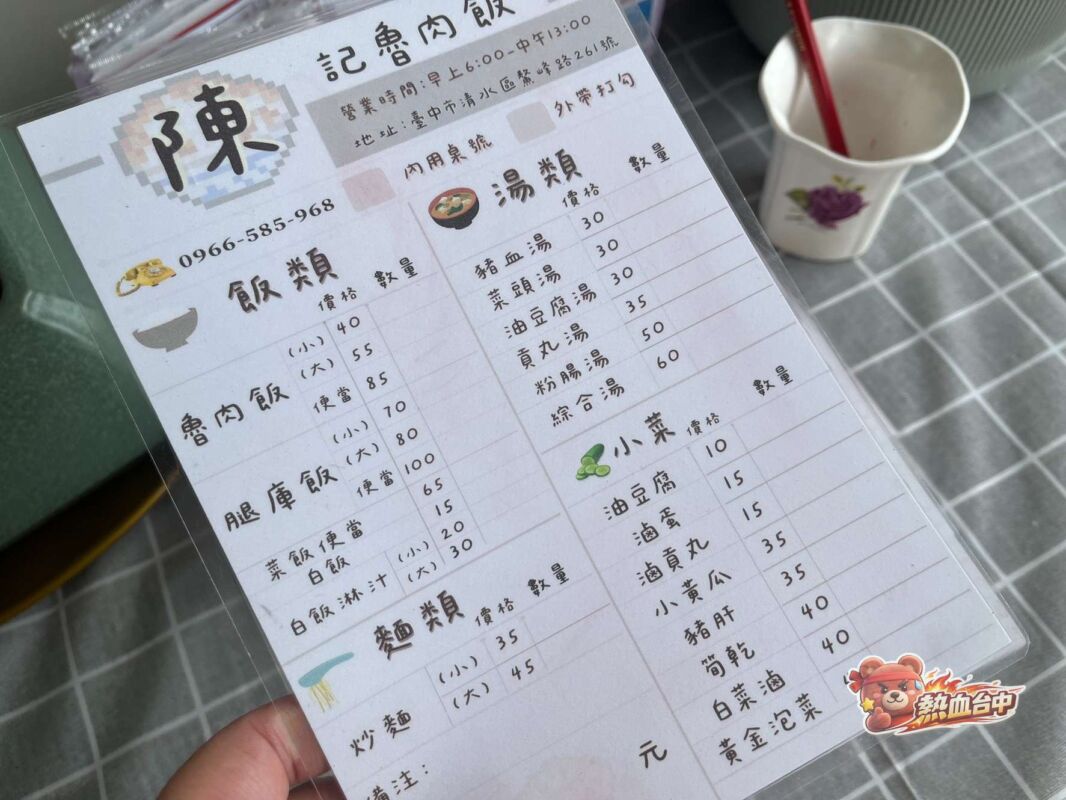 陳
記魯肉飯
營業時間:早上6:00-中午13:00
地址:臺中市清水區鰲峰路261號
內用桌號
外帶打勾
0966-585-968
飯類 價格 數量
魯肉飯 (小) 40
(大) 55
便當 85
腿庫飯 (小) 70
(大) 80
便當 100
菜飯便當 65
白飯 15
白飯淋汁 (小) 20
(大) 30
麵類 價格 數量
炒麵 (小) 35
(大) 45
備注: 元
湯類 價格 數量
豬血湯 30
菜頭湯 30
油豆腐湯 30
貢丸湯 35
粉腸湯 50
綜合湯 60
小菜 價格 數量
油豆腐 10
滷蛋 15
滷貢丸 15
小黃瓜 35
豬肝 35
筍乾 40
白菜滷 40
黃金泡菜
熱血台中